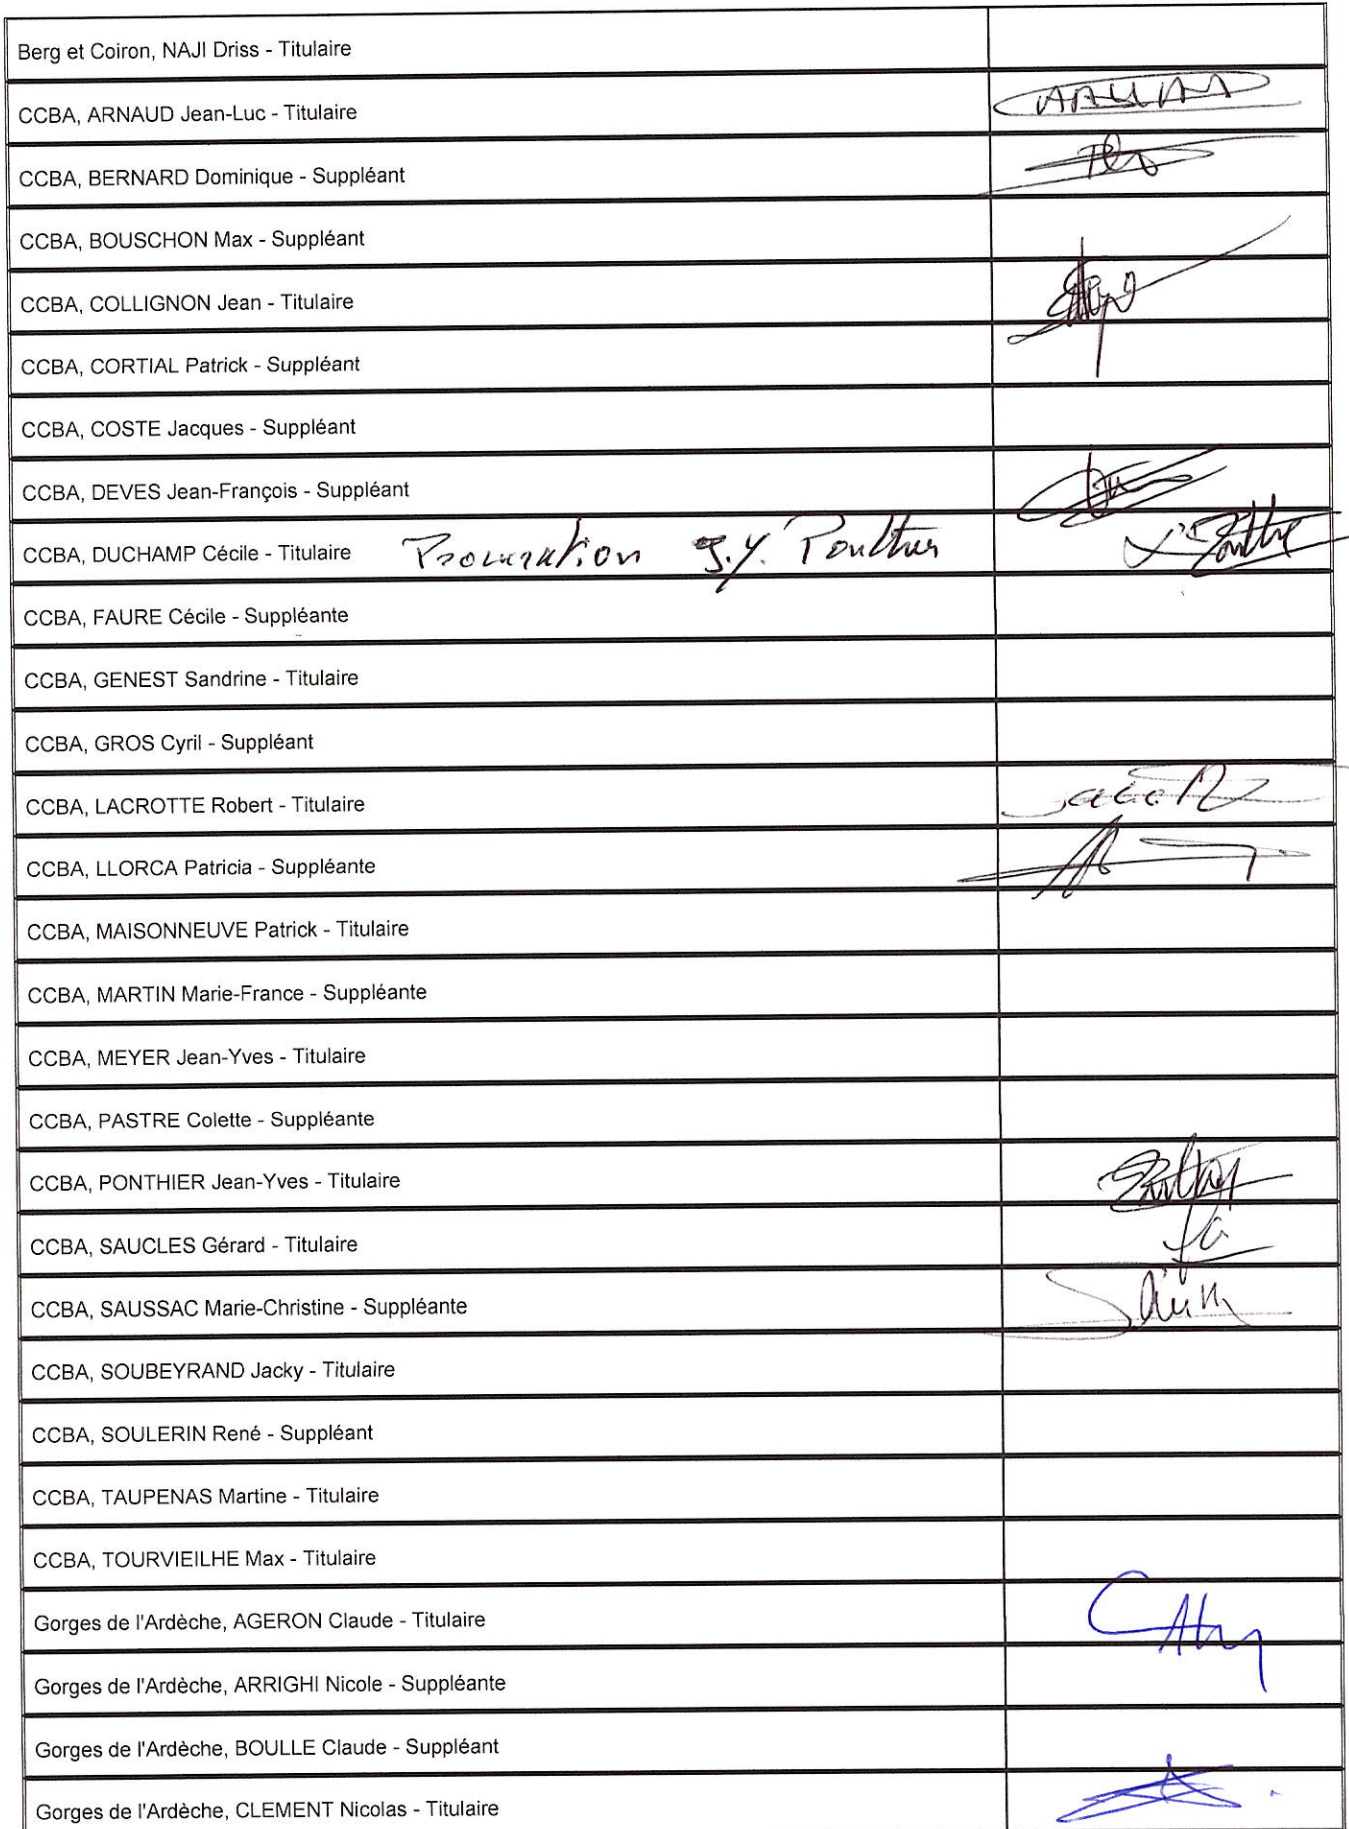 Berg et Coiron, NAJI Driss - Titulaire
CCBA, ARNAUD Jean-Luc - Titulaire
CCBA, BERNARD Dominique - Suppléant
CCBA, BOUSCHON Max - Suppléant
CCBA, COLLIGNON Jean - Titulaire
CCBA, CORTIAL Patrick - Suppléant
CCBA, COSTE Jacques - Suppléant
CCBA, DEVES Jean-François - Suppléant
CCBA, DUCHAMP Cécile - Titulaire Procuration J.Y. Ponthier
CCBA, FAURE Cécile - Suppléante
CCBA, GENEST Sandrine - Titulaire
CCBA, GROS Cyril - Suppléant
CCBA, LACROTTE Robert - Titulaire
CCBA, LLORCA Patricia - Suppléante
CCBA, MAISONNEUVE Patrick - Titulaire
CCBA, MARTIN Marie-France - Suppléante
CCBA, MEYER Jean-Yves - Titulaire
CCBA, PASTRE Colette - Suppléante
CCBA, PONTHIER Jean-Yves - Titulaire
CCBA, SAUCLES Gérard - Titulaire
CCBA, SAUSSAC Marie-Christine - Suppléante
CCBA, SOUBEYRAND Jacky - Titulaire
CCBA, SOULERIN René - Suppléant
CCBA, TAUPENAS Martine - Titulaire
CCBA, TOURVIEILHE Max - Titulaire
Gorges de l'Ardèche, AGERON Claude - Titulaire
Gorges de l'Ardèche, ARRIGHI Nicole - Suppléante
Gorges de l'Ardèche, BOULLE Claude - Suppléant
Gorges de l'Ardèche, CLEMENT Nicolas - Titulaire